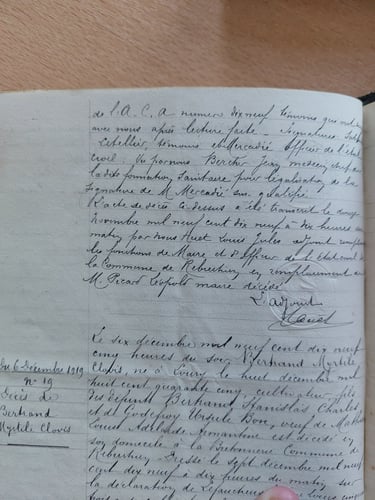 de l'A.C.A numéro dix neuf témoins qui ont signé
avec nous après lecture faite. Signatures
Letellier, témoins et Mercadié officier de l'état
civil. Vu par nous Bercher Jean médecin chef
de la dite formation sanitaire pour légalisation de la
signature de M. Mercadié sus qualifié.
L'acte de décès ci-dessus a été transcrit le
novembre mil neuf cent dix neuf à dix heures du
matin par nous Huet Louis Jules adjoint remplissant
les fonctions de Maire et d'officier de l'état civil de
la Commune de Rebréchien en remplacement de
M. Picard Léopold maire décédé
L'adjoint
Huet
Du 6 Décembre 1919
n° 19
Décès de
Bertrand
Myrtile Clovis
Le six décembre mil neuf cent dix neuf
cinq heures du soir Bertrand Myrtile
Clovis, né à Loury le huit décembre mil
huit cent quarante cinq, cultivateur, fils
des défunts Bertrand, Stanislas Charles,
et de Godefroy Ursule Bon, veuf de
Louise Adélaïde est décédé en
son domicile à la Commune de
Rebréchien. Dressé le sept décembre mil neuf
cent dix neuf à dix heures du matin sur
la déclaration de